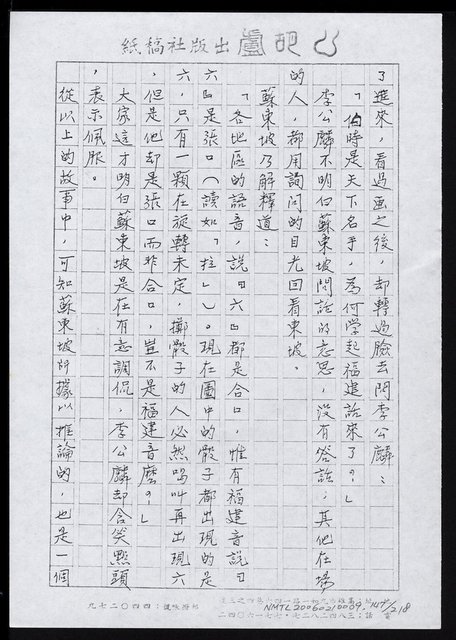 紙稿社版出蘆葫
了進來，看過画之後，却轉过臉去問李公麟：
「伯時是天下名手，為何学起福建話來了？」
李公麟不明白蘇東坡問話的意思，没有发話，其他在場
的人，都用詢问的目光回看東坡。
蘇東坡乃解釋道：
「各地區的語音，説『六』都是合口，惟有福建音説『
六』是張口（讀如「拉」）。現在圖中的骰子都出現的是
六，只有一顆在旋轉未定，擲骰子的人必然喝叫再出現六
，但是他却是張口而非合口，豈不是福建音麼？」
大家這才明白蘇東坡是在有意調侃，李公麟却含笑點頭
，表示佩服。
從以上的故事中，可知蘇東坡所據以推論的，也是一個
NMTL20060210009.147/218